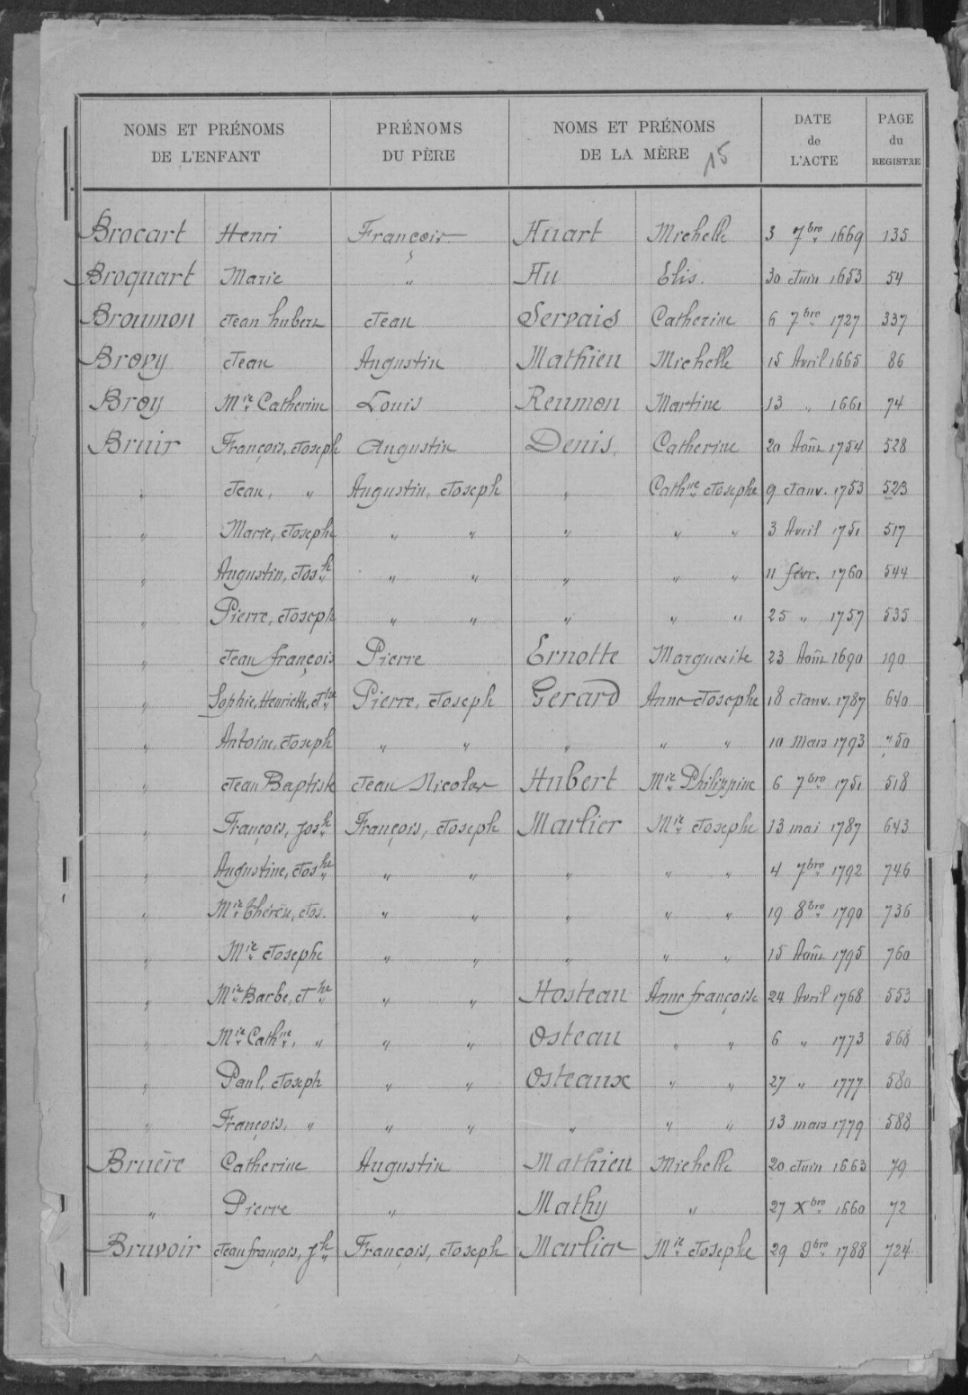 NOMS ET PRÉNOMS DE L'ENFANT | PRÉNOMS DU PÈRE | NOMS ET PRÉNOMS DE LA MÈRE 15 | DATE de L'ACTE | PAGE du REGISTRE
Brocart Henri François Huart Michelle 3 7bre 1669 135
Broquart Marie " Hu Elis. 30 Juin 1653 54
Broumon Jean hubert Jean Servais Catherine 6 7bre 1727 337
Brovy Jean Augustin Mathieu Michelle 15 Avril 1665 86
Broy Mie Catherine Louis Reumon Martine 13 " 1661 74
Bruir François, Joseph Augustin Denis, Catherine 20 Août 1754 528
" Jean, " Augustin, Joseph " Cathne Josephe 9 Janv. 1753 523
" Marie, Josephe " " " " " 3 Avril 1751 517
" Augustin, Josh " " " " " 11 févr. 1760 544
" Pierre, Joseph " " " " " 25 " 1757 535
" Jean françois Pierre Ernotte Marguerite 23 Août 1690 190
" Sophie, Henriette, Jhe Pierre, Joseph Gerard Anne Josephe 18 Janv. 1787 640
" Antoine, Joseph " " " " " 10 Mars 1793 "50
" Jean Baptiste Jean Nicolas Hubert Mie Philippine 6 7bre 1751 518
" François, Josh François, Joseph Marlier Mie Josephe 13 mai 1787 643
" Augustine, Joshe " " " " " 4 7bre 1792 746
" Mie Thérèse, Jos. " " " " " 19 8bre 1790 736
" Mie Josephe " " " " " 15 Août 1795 760
" Mie Barbe, Jhe " " Hosteau Anne françoise 24 Avril 1768 553
" Mie Cathne, " " " Osteau " " 6 " 1773 568
" Paul, Joseph " " Osteaux " " 27 " 1777 580
" François, " " " " " " 13 mars 1779 588
Bruère Catherine Augustin Mathieu Michelle 20 Juin 1663 79
" Pierre " Mathy " 27 Xbre 1660 72
Bruvoir Jean françois, Jh François, Joseph Marlier Mie Josephe 29 9bre 1788 724